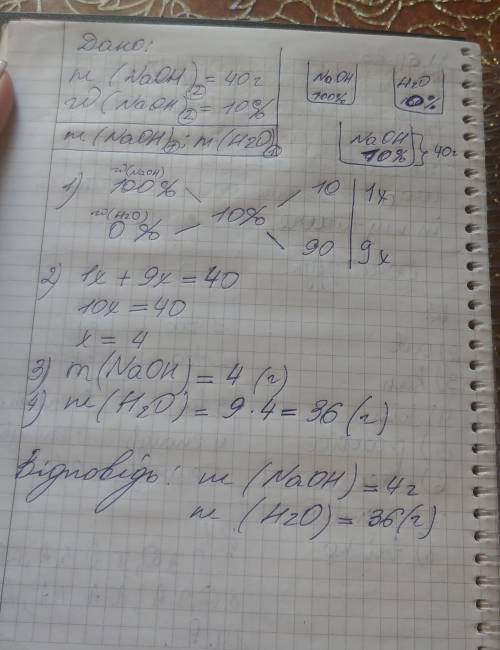 Дано:
m (NaOH)₂ = 40г
w (NaOH)₂ = 10%
m (NaOH)₁; m (H₂O)₁
NaOH
100%
H₂O
0%
NaOH
10% } 40г
1) w(NaOH)
100% 10 | 1x
10%
w(H₂O)
0% 90 | 9x
2) 1x + 9x = 40
10x = 40
x = 4
3) m (NaOH) = 4 (г)
4) m (H₂O) = 9 · 4 = 36 (г)
Відповідь: m (NaOH) = 4г
m (H₂O) = 36(г)